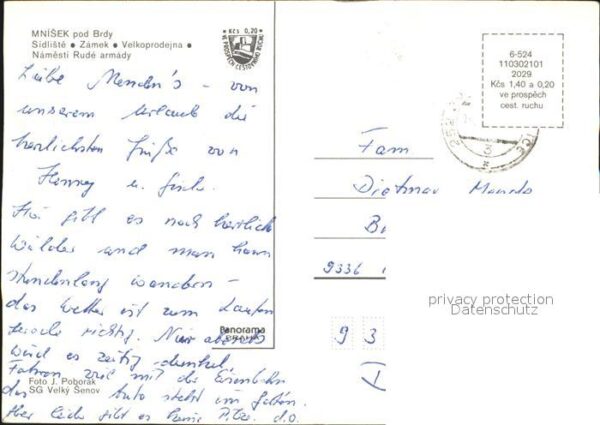 MNÍŠEK pod Brdy
Sídliště • Zámek • Velkoprodejna •
Náměstí Rudé armády
Kčs 0,20
VE PROSPĚCH CESTOVNÍHO RUCHU
6-524
110302101
2029
Kčs 1,40 a 0,20
ve prospěch
cest. ruchu
Liebe - von
unserem Urlaub die
herzlichsten Grüße von
Henny u.
Hier gibt es noch herrlich
Wälder und man kann
stundenlang wandern -
das Wetter ist zum Laufen
gerade richtig. Nur abends
wird es zeitig dunkel.
Fahren viel mit der Eisenbahn
das Auto steht im
Aber leider gibt es keine Pilze. d.o.
Fam
Dietmar
9336
9 3
Panorama
Foto J. Poborák
SG Velký Šenov
privacy protection
Datenschutz